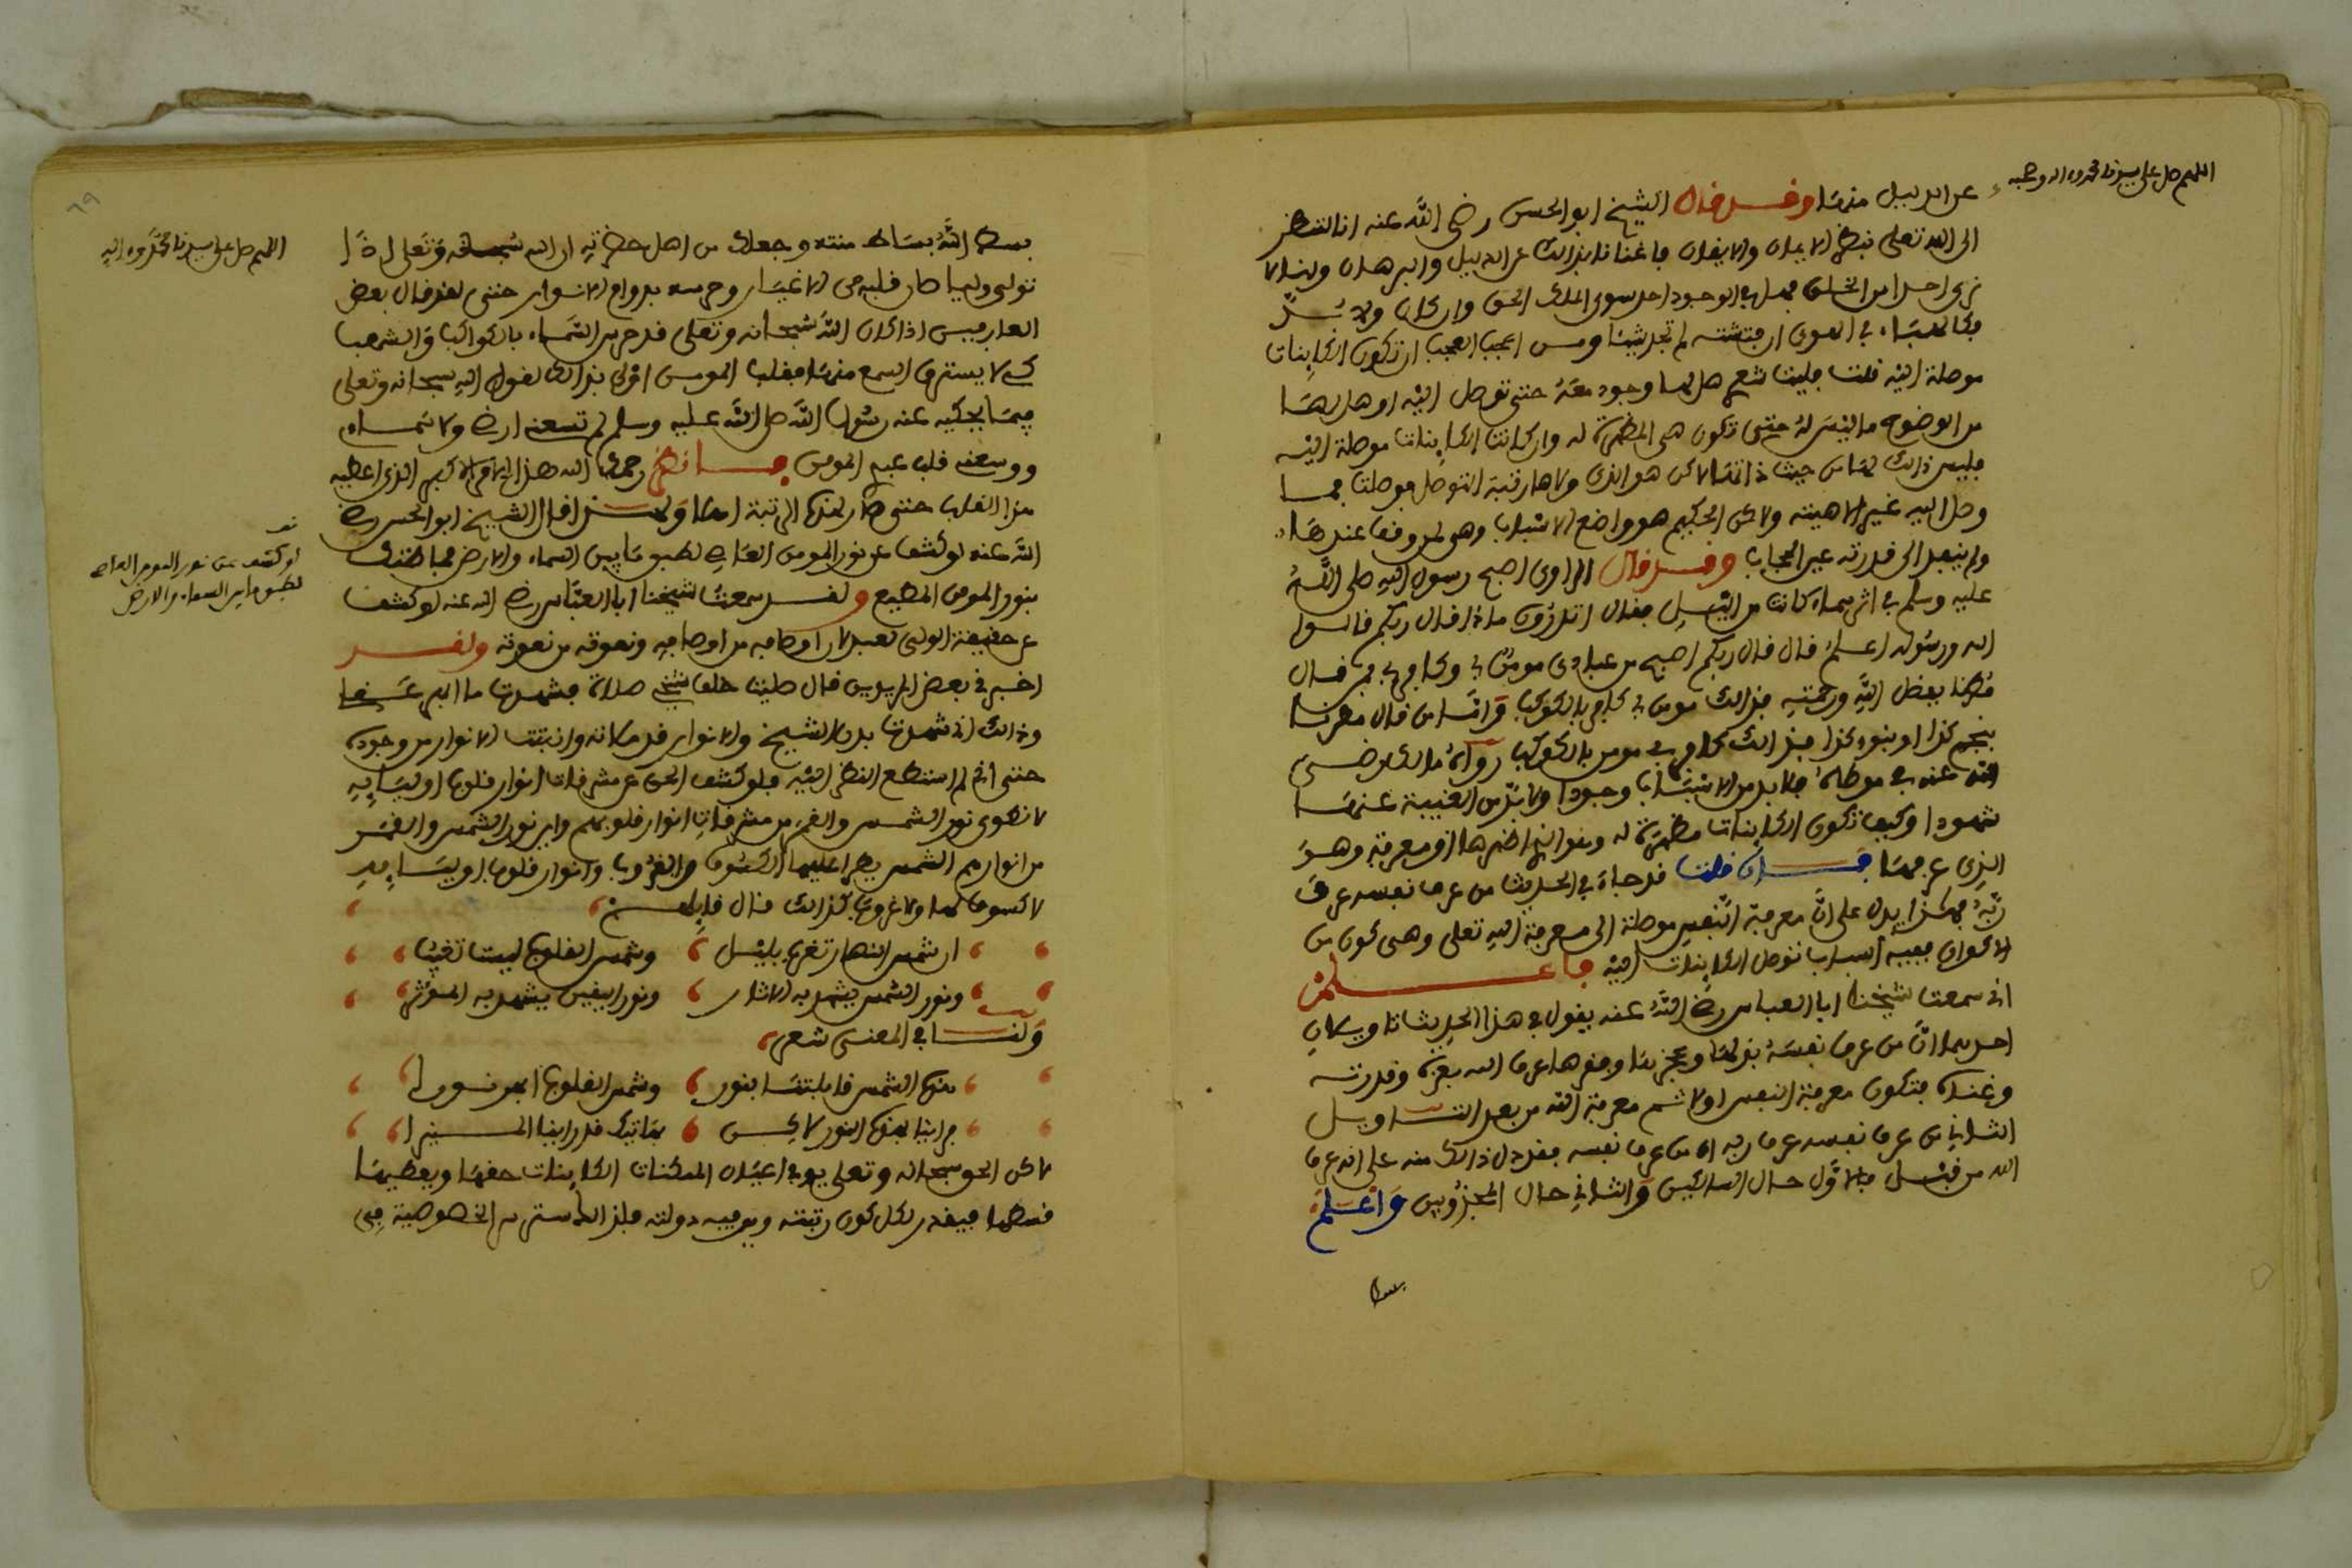 اللهم صل على سيدنا محمد وءاله وصحبه
عن الدليل منها وقد قال الشيخ ابو الحسن رضي الله عنه انا لننظر
الى الله تعلى ببصر الايمان والايقان فاغنانا بذالك عن الدليل والبرهان وانا لا
نرى احدا من الخلق فهل في الوجود احد سوى الملك الحق وان كان ولا بد
فكالهباء في الهوى ان فتشته لم تجد شيئا ومن اعجب العجب ان تكون الكاينات
موصلة اليه فليت شعري هل لها وجود معه حتى توصل اليه او هل لها
من الوضوح ما ليس له حتى تكون هي المظهرة له وان كانت الكاينات موصلة اليه
فليس ذالك لها من حيث ذاتها لاكن هو الذي ولاها رتبة التوصل فوصلت فما
وصل اليه غير الاهيته ولاكن الحكيم هو واضع الاسباب وهي لمن وقف عندها
ولم ينفذ الى قدرته عين الحجاب وقد قال الراوي اصبح رسول الله صلى الله
عليه وسلم في اثر سماء كانت من الليل فقال اتدرون ماذا قال ربكم قالوا
الله ورسوله اعلم قال قال ربكم اصبح من عبادي مومن بي وكافر بي فمن قال
مطرنا بفضل الله ورحمته فذالك مومن بي كافر بالكوكب واما من قال مطرنا
بنجم كذا او بنوء كذا فذالك كافر بي مومن بالكوكب رواه مالك رضي
الله عنه في موطاه فلا بد من الاسباب وجودا ولا بد من الغيبة عنها
شهودا وكيف تكون الكاينات مظهرة له وهو الذي اظهرها او معرفة وهو
الذي عرفها فان قلت قد جاء في الحديث من عرف نفسه عرف
ربه فهذا يدل على ان معرفة النفس موصلة الى معرفة الله تعلى وهي كون من
الاكوان ففيه اثبات توصل الكاينات اليه فاعلم
اني سمعت شيخنا ابا العباس رضي الله عنه يقول في هذا الحديث تاويلان
احدهما ان من عرف نفسه بذلها وعجزها وفقرها عرف الله بعزه وقدرته
وغناه فتكون معرفة النفس اولا ثم معرفة الله من بعد التاويل
الثاني من عرف نفسه عرف ربه اي من عرف نفسه فقد دل ذالك منه على انه عرف
الله من قبل فالاول حال السالكين والثاني حال المجذوبين واعلم
بسط
اللهم صل على سيدنا محمد وءاله
بسط الله بساط منته وجعلك من اهل حضرته ان الله سبحانه وتعلى اذا
تولى وليا صان قلبه من الاغيار وحرسه بدوام الانوار حتى لقد قال بعض
العارفين اذا كان الله سبحانه وتعلى قد حرس السماء بالكواكب والشهب
كي لا يسترق السمع منها فقلب المومن اولى بذالك لقول الله سبحانه وتعلى
فيما يحكيه عنه رسول الله صلى الله عليه وسلم لم تسعني ارضي ولا سماءي
ووسعني قلب عبدي المومن فانظر رحمك الله هذا الامر الاكبر الذي اعطيه
هذا القلب حتى صار لهذه الرتبة اهلا ولقد قال الشيخ ابو الحسن رضي
الله عنه لو كشف عن نور المومن العاصي لطبق ما بين السماء والارض فما ظنك
لو كشف عن نور المومن العاصي
لطبق ما بين السماء والارض
بنور المومن المطيع ولقد سمعت شيخنا ابا العباس رضي الله عنه لو كشف
عن حقيقة الولي لعبد لان اوصافه من اوصافه ونعوته من نعوته ولقد
اخبرني بعض المريدين قال صليت خلف شيخي صلاة فشهدت ما ابهر عقلي
وذالك اني شهدت بدن الشيخ والانوار قد ملاته وانبثت الانوار من وجوده
حتى اني لم استطع النظر اليه فلو كشف الحق عن مشرقات انوار قلوب اوليايه
لانطوى نور الشمس والقمر من مشرقات انوار قلوبهم واين نور الشمس والقمر
من انوارهم الشمس يطرا عليها الكسوف والغروب وانوار قلوب اوليايه
لا كسوف لها ولا غروب كذالك قال قايلهم
ان شمس النهار تغرب بليل وشمس القلوب ليست تغيب
ونور الشمس يشهد به الاثار ونور اليقين يشهد به الموثر
ولنا في المعنى شعر
هذه الشمس قابلتنا بنور وشمس القلوب ابهر نورا
فراينا بهذه النور لاكن بهاتيك قد راينا المنيرا
لاكن الحق سبحانه وتعلى يوفي اعيان الممكنات الكاينات حقها ويعطيها
قسطها فيقدر لكل كون رتبته ويوفيه دولته فلذالك استتر سر الخصوصية في